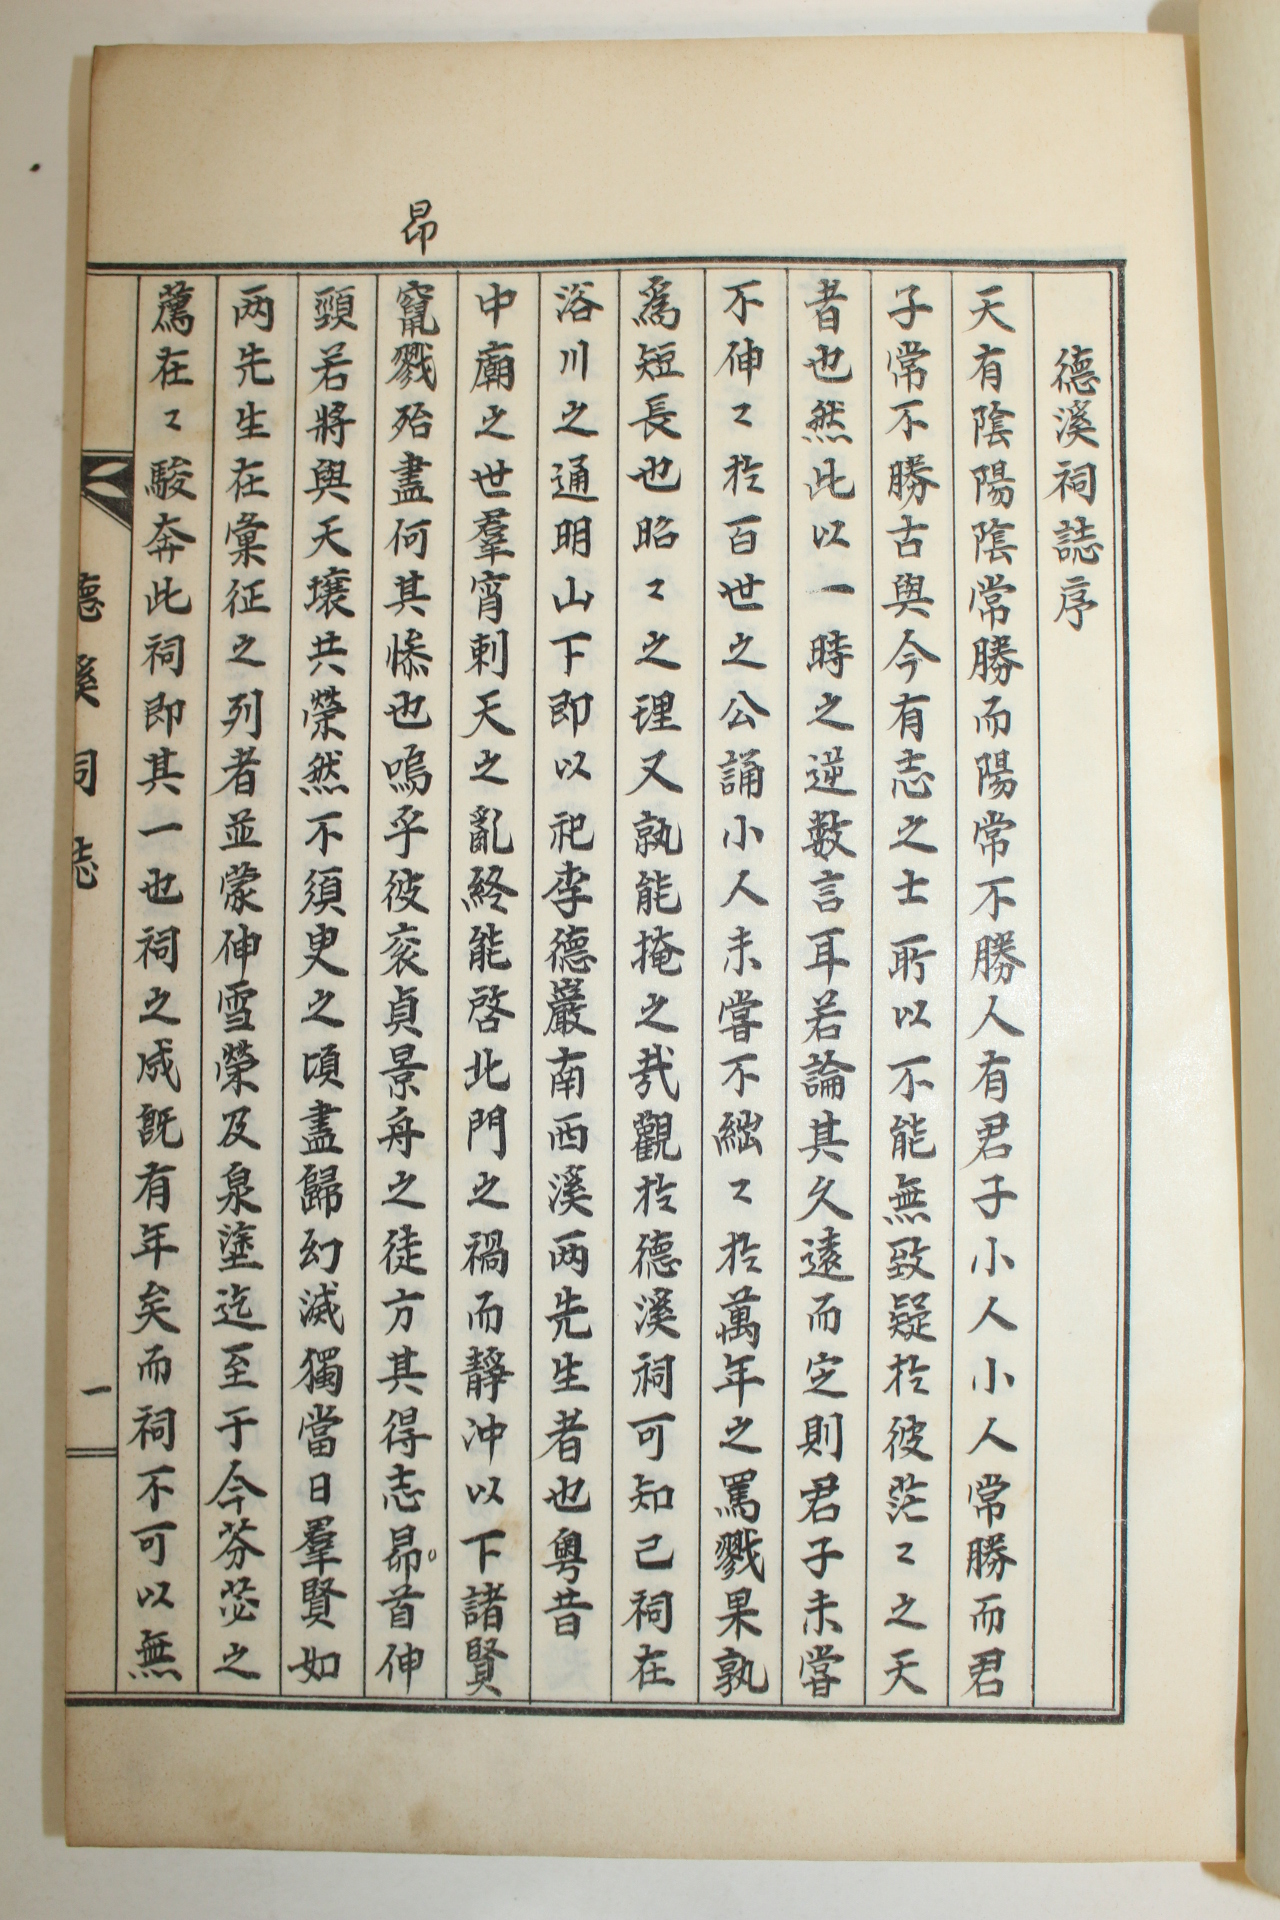 德溪祠誌序
天有陰陽陰常勝而陽常不勝人有君子小人小人常勝而君
子常不勝古與今有志之士所以不能無致疑於彼茫〻之天
者也然此以一時之逆數言耳若論其久遠而定則君子未嘗
不伸〻於百世之公誦小人未嘗不絀〻於萬年之罵戮果孰
爲短長也昭〻之理又孰能掩之哉觀於德溪祠可知已祠在
浴川之通明山下即以祀李德巖南西溪两先生者也粤昔
中廟之世羣宵刺天之亂終能啓北門之禍而靜冲以下諸賢
竄戮殆盡何其慘也嗚乎彼衮貞景舟之徒方其得志昴首伸
昂
頸若將與天壤共榮然不須臾之頃盡歸幻滅獨當日羣賢如
两先生在彙征之列者並蒙伸雪榮及泉塗迄至于今芬苾之
薦在〻駿奔此祠即其一也祠之成旣有年矣而祠不可以無
德溪祠誌
一